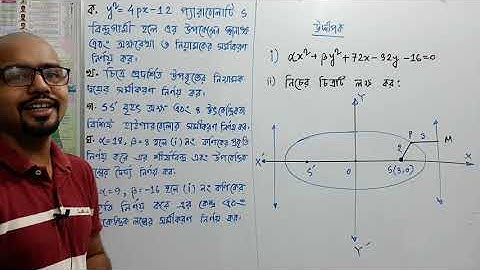 ক. y² = 4px-12 প্যারাবোলাটি S
বিন্দুগামী হলে এর উপকেন্দ্রের স্থানাঙ্ক
এবং অক্ষরেখা ও নিয়ামকের সমীকরণ
নির্ণয় কর।
খ. চিত্রে প্রদর্শিত উপবৃত্তের নিয়ামক
দ্বয়ের সমীকরণ নির্ণয় কর।
গ. SS' বৃহৎ অক্ষ এবং 8 উৎকেন্দ্রিকতা
বিশিষ্ট হাইপারবোলার সমীকরণ নির্ণয় কর।
ঘ. α=18, β=8 হলে (i) নং কণিকের প্রকৃতি
নির্ণয় করে এর শীর্ষবিন্দু এবং উপকেন্দ্রিক
লম্বের দৈর্ঘ্য নির্ণয় কর।
α=9, β=-16 হলে (i) নং কণিকের
প্রকৃতি নির্ণয় করে এর কেন্দ্র এবং
উপকেন্দ্রিক লম্বের সমীকরণ নির্ণয় কর।
উদ্দীপক
i) αx² + βy² + 72x - 32y - 16 = 0
ii) নিচের চিত্রটি লক্ষ কর:
Y
P 3 M
2
X' S' O S(3,0) X
Y'